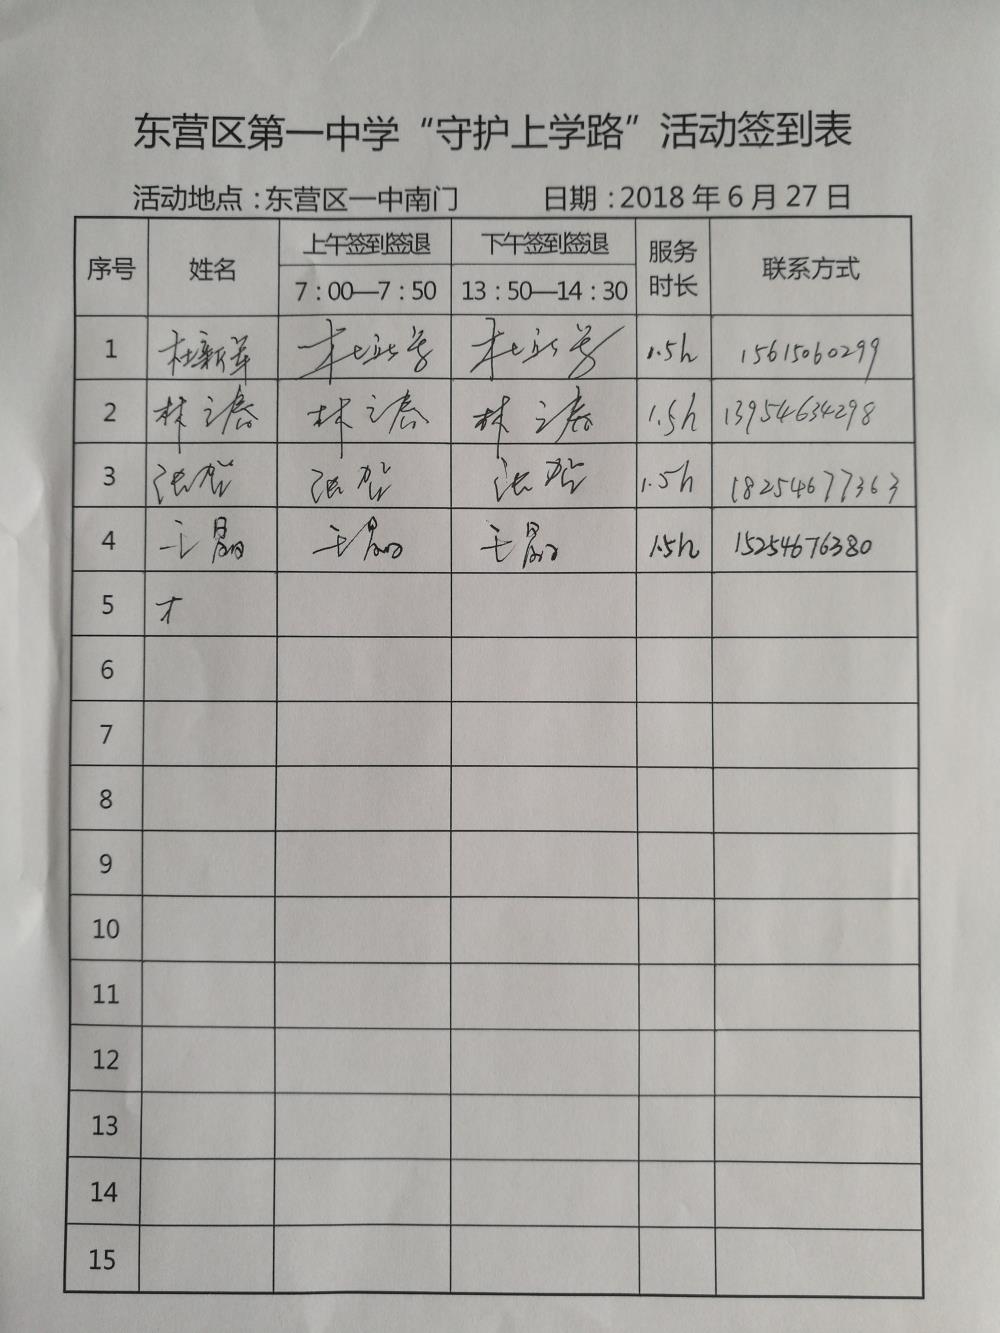 东营区第一中学“守护上学路”活动签到表
活动地点：东营区一中南门 日期：2018年6月27日
序号 姓名 上午签到签退 下午签到签退 服务时长 联系方式
7：00—7：50 13：50—14：30
1 杜新 1.5h 15615060299
2 林 1.5h 13954634298
3 张 1.5h 18254677363
4 王晶 王晶 王晶 1.5h 15254676380
5
6
7
8
9
10
11
12
13
14
15